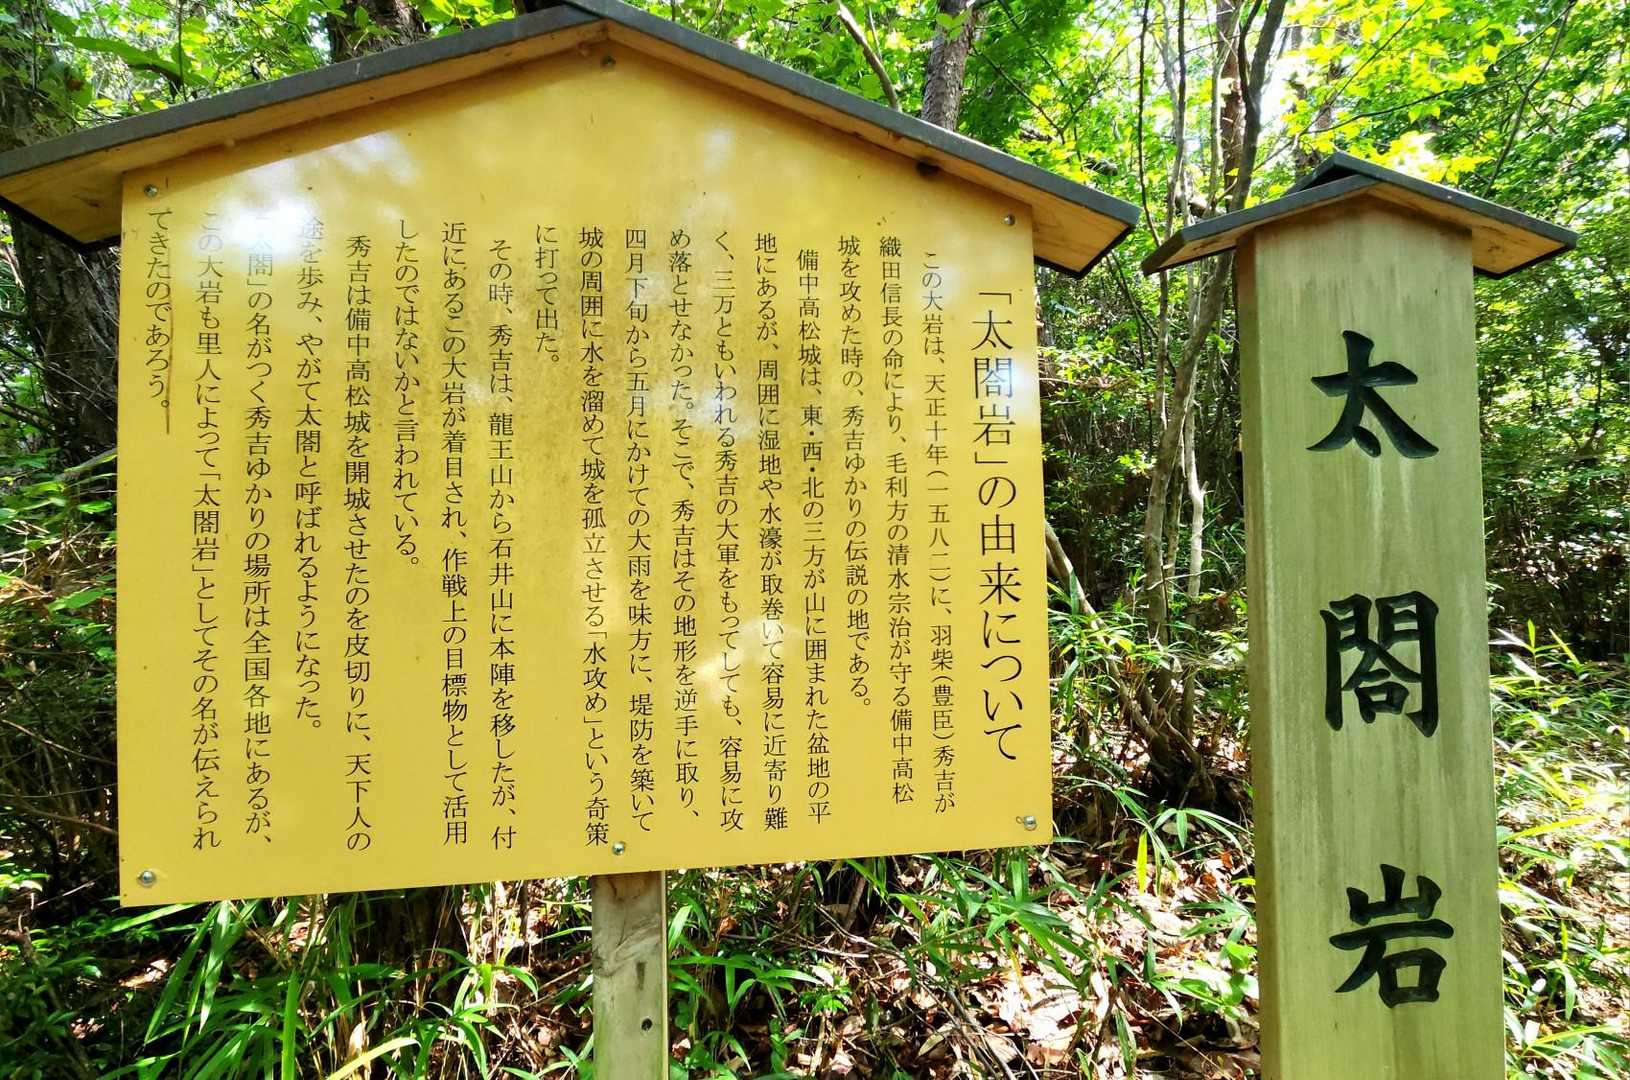 「太閤岩」の由来について
この大岩は、天正十年(一五八二)に、羽柴(豊臣)秀吉が
織田信長の命により、毛利方の清水宗治が守る備中高松
城を攻めた時の、秀吉ゆかりの伝説の地である。
備中高松城は、東・西・北の三方が山に囲まれた盆地の平
地にあるが、周囲に湿地や水濠が取巻いて容易に近寄り難
く、三万ともいわれる秀吉の大軍をもってしても、容易に攻
め落とせなかった。そこで、秀吉はその地形を逆手に取り、
四月下旬から五月にかけての大雨を味方に、堤防を築いて
城の周囲に水を溜めて城を孤立させる「水攻め」という奇策
に打って出た。
その時、秀吉は、龍王山から石井山に本陣を移したが、付
近にあるこの大岩が着目され、作戦上の目標物として活用
したのではないかと言われている。
秀吉は備中高松城を開城させたのを皮切りに、天下人の
途を歩み、やがて太閤と呼ばれるようになった。
「太閤」の名がつく秀吉ゆかりの場所は全国各地にあるが、
この大岩も里人によって「太閤岩」としてその名が伝えられ
てきたのであろう。
太閤岩